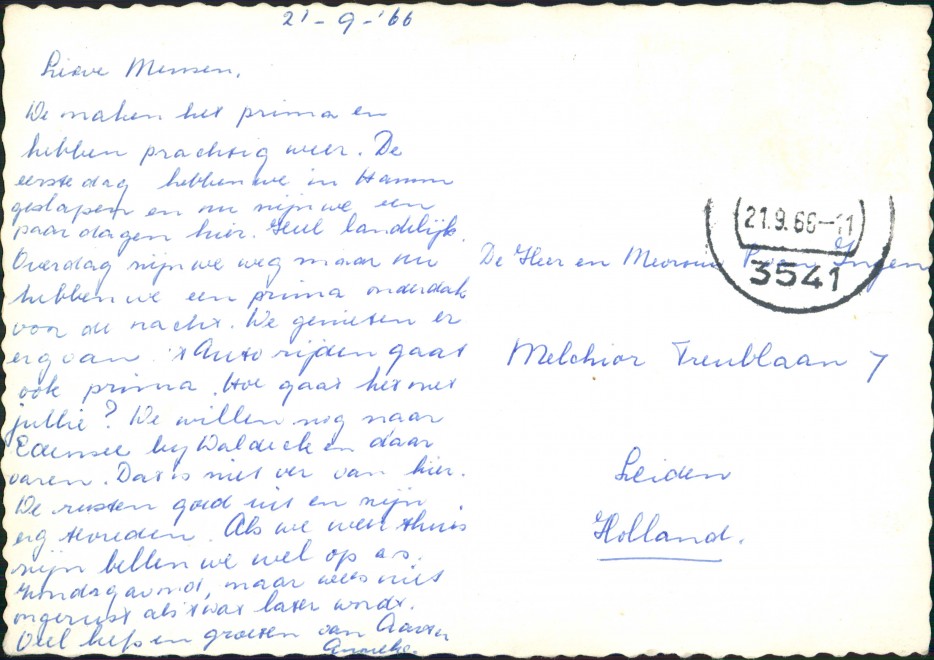 21-9-'66
Lieve Mensen,
We maken het prima en
hebben prachtig weer. De
eerste dag hebben we in Hamm
geslapen en nu zijn we een
paar dagen hier. Heel landelijk.
Overdag zijn we weg maar nu
hebben we een prima onderdak
voor de nacht. We genieten er
erg van. 't Autorijden gaat
ook prima. Hoe gaat het met
jullie? We willen nog naar
Edersee bij Waldeck en daar
varen. Dat is niet ver van hier.
We rusten goed uit en zijn
erg tevreden. Als we weer thuis
zijn bellen we wel op a.s.
Zondagavond, maar wees niet
ongerust als 't wat later wordt.
Veel liefs en groeten van
Anneke
21.9.66-11
3541
De Heer en Mevrouw
Melchior Treublaan 7
Leiden
Holland.